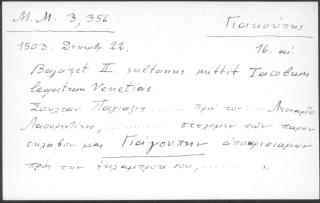 M. M. 3, 356
Γιακούπης
1503. Δεκεμβ. 22.
16. αἰ
Bajazet II. sultanus mittit Iacobum
legatum Venetias.
Σουλταν Παγιαζιτ ........ πρὸ τὸν ..... Λεονάρδο
Λαουρεντίνο, .............. στέλομεν τὸν παρον
σκλαβον μας Γιαγουπην ἀποκρισιαριον
πρὸς τὴν ἐκλαμπροτη σου, .......... ,